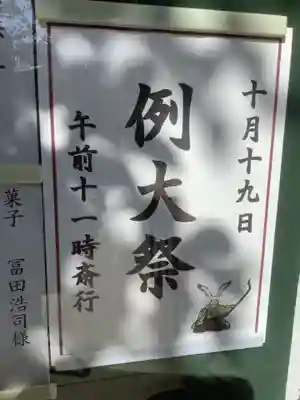 十月十九日
例大祭
午前十一時斎行
菓子　冨田浩司様